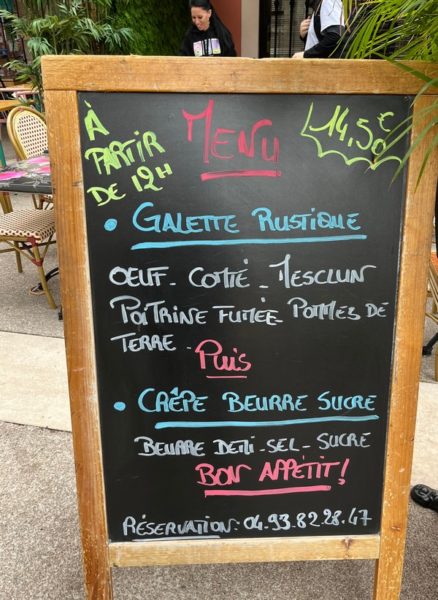 À PARTIR DE 12H
Menu
14,50€
• GALETTE RUSTIQUE
OEUF - COMTÉ - MESCLUN
POITRINE FUMÉE - POMMES DE
TERRE -
Puis
• CRÊPE BEURRE SUCRE
BEURRE DEMI-SEL - SUCRE
BON APPÉTIT!
RÉSERVATION - 04.93.82.28.47